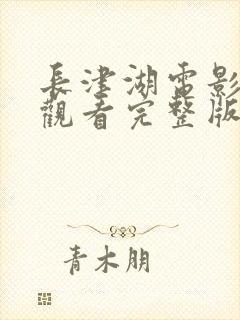 長津湖電影
觀看完整版
青木朋